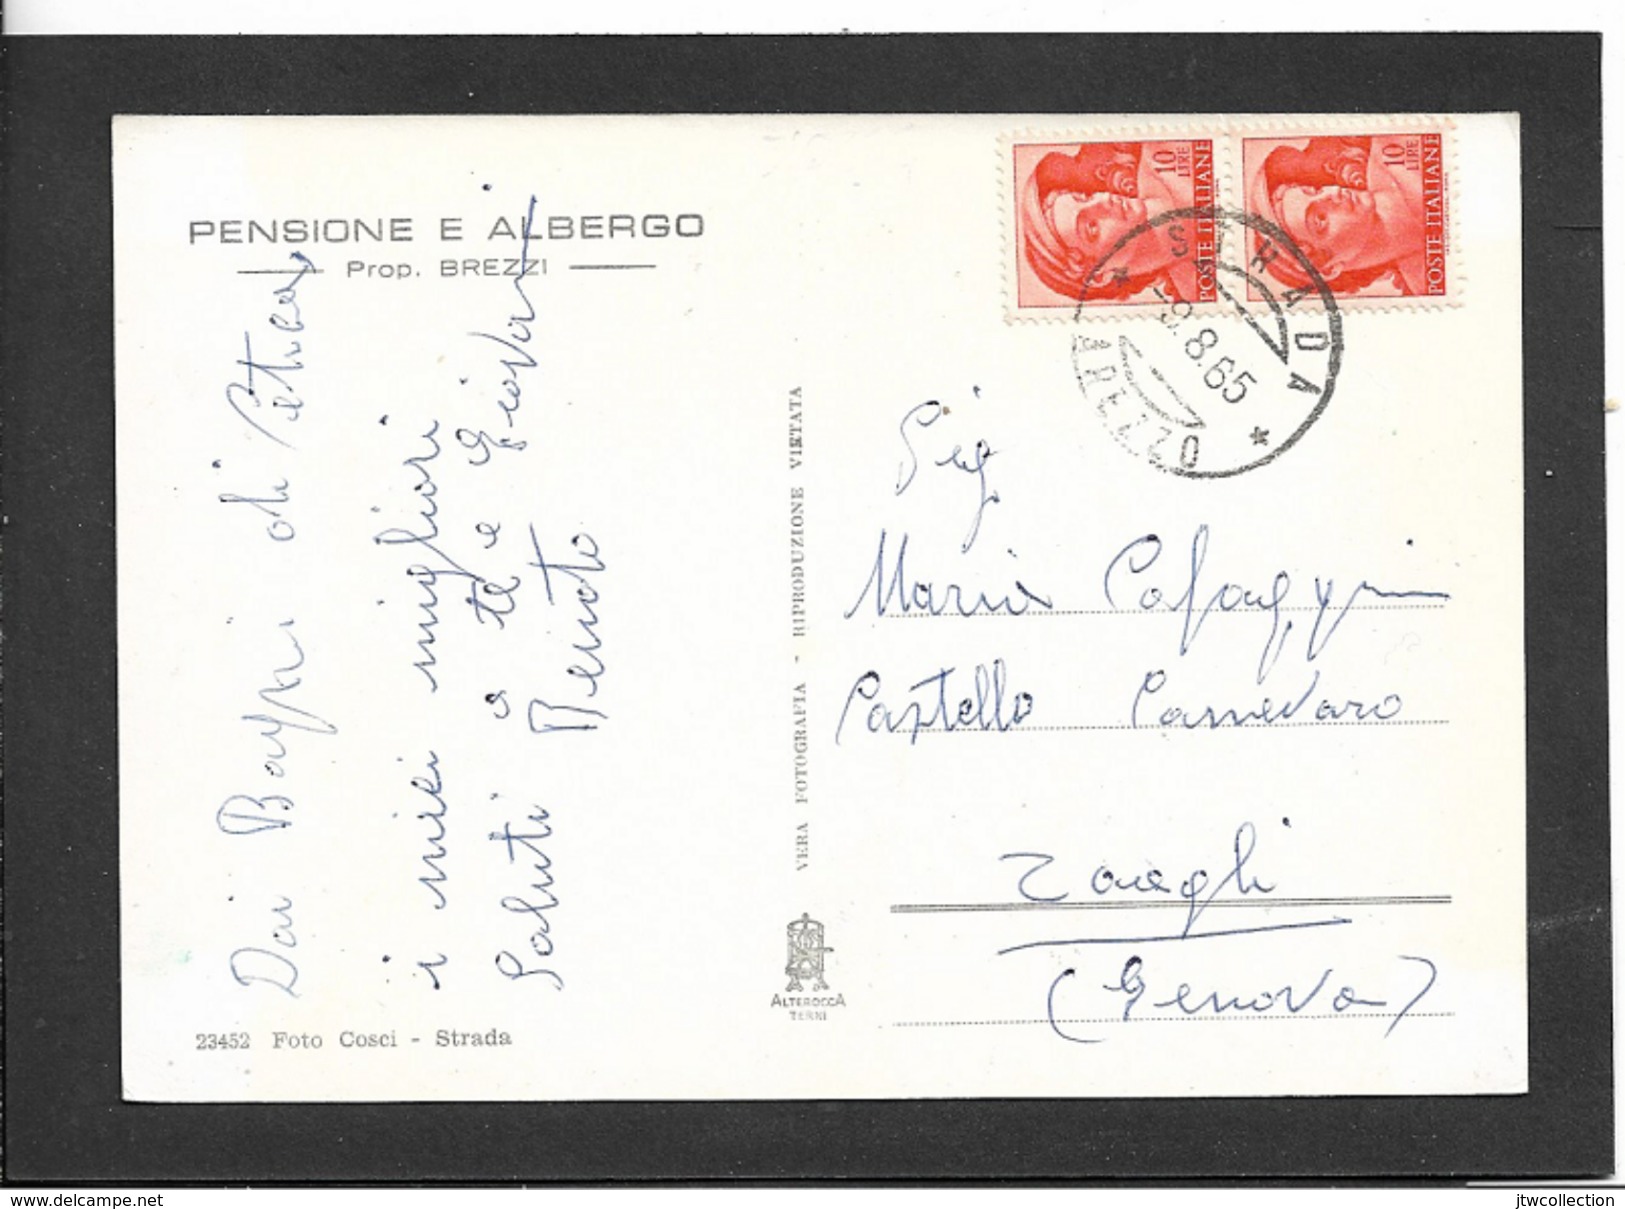 PENSIONE E ALBERGO
Prop. BREZZI
Dai Bagni di
i miei migliori
Saluti a te e Giovanni
Renato
23452 Foto Cosci - Strada
VERA FOTOGRAFIA - RIPRODUZIONE VIETATA
ALTEROCCA
TERNI
10 LIRE
POSTE ITALIANE
10 LIRE
POSTE ITALIANE
* STRADA *
-9.8.65
AREZZO
Sig
Maria Cafaggini
Castello Canevaro
Zoagli
(Genova)
www.delcampe.net
jtwcollection